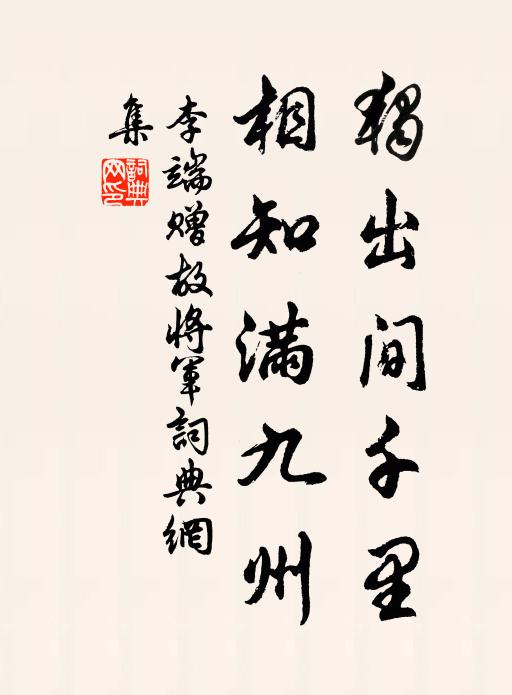 獨出間千里
相知滿九州
李端赠故将軍詞典網
集
詞典网印